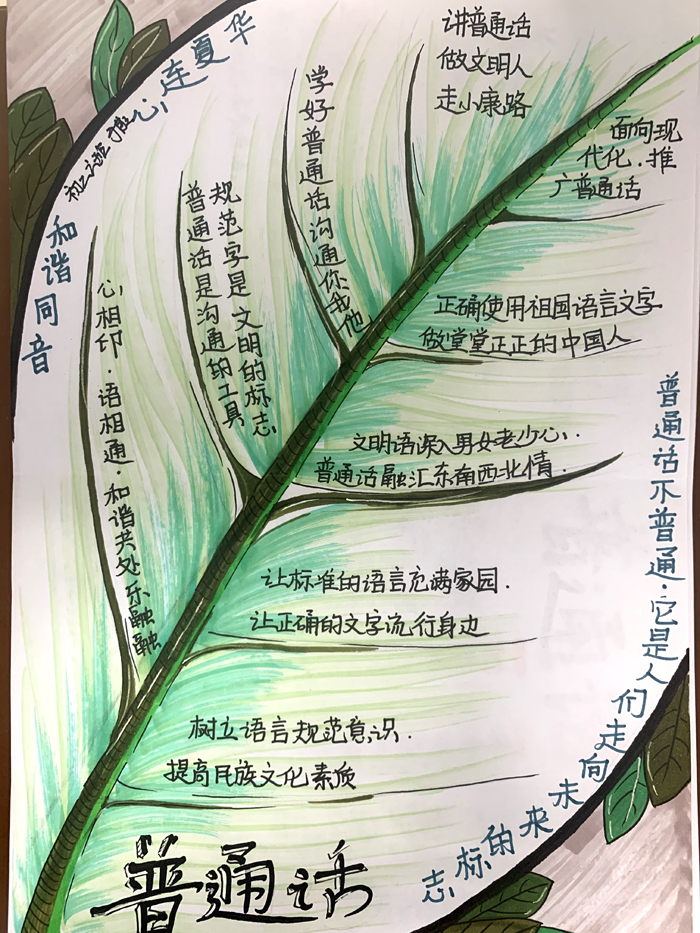 和谐同音
心连夏华
心相印·语相通·和谐共处乐融融
规范字是文明的标志
普通话是沟通的工具
学好普通话沟通你我他
讲普通话
做文明人
走小康路
面向现
代化·推
广普通话
正确使用祖国语言文字
做堂堂正正的中国人
文明语深入男女老少心·
普通话融汇东南西北情·
让标准的语言充满家园·
让正确的文字流行身边
树立语言规范意识·
提高民族文化素质
普通话不普通·它是人们走向未来的标志
普通话